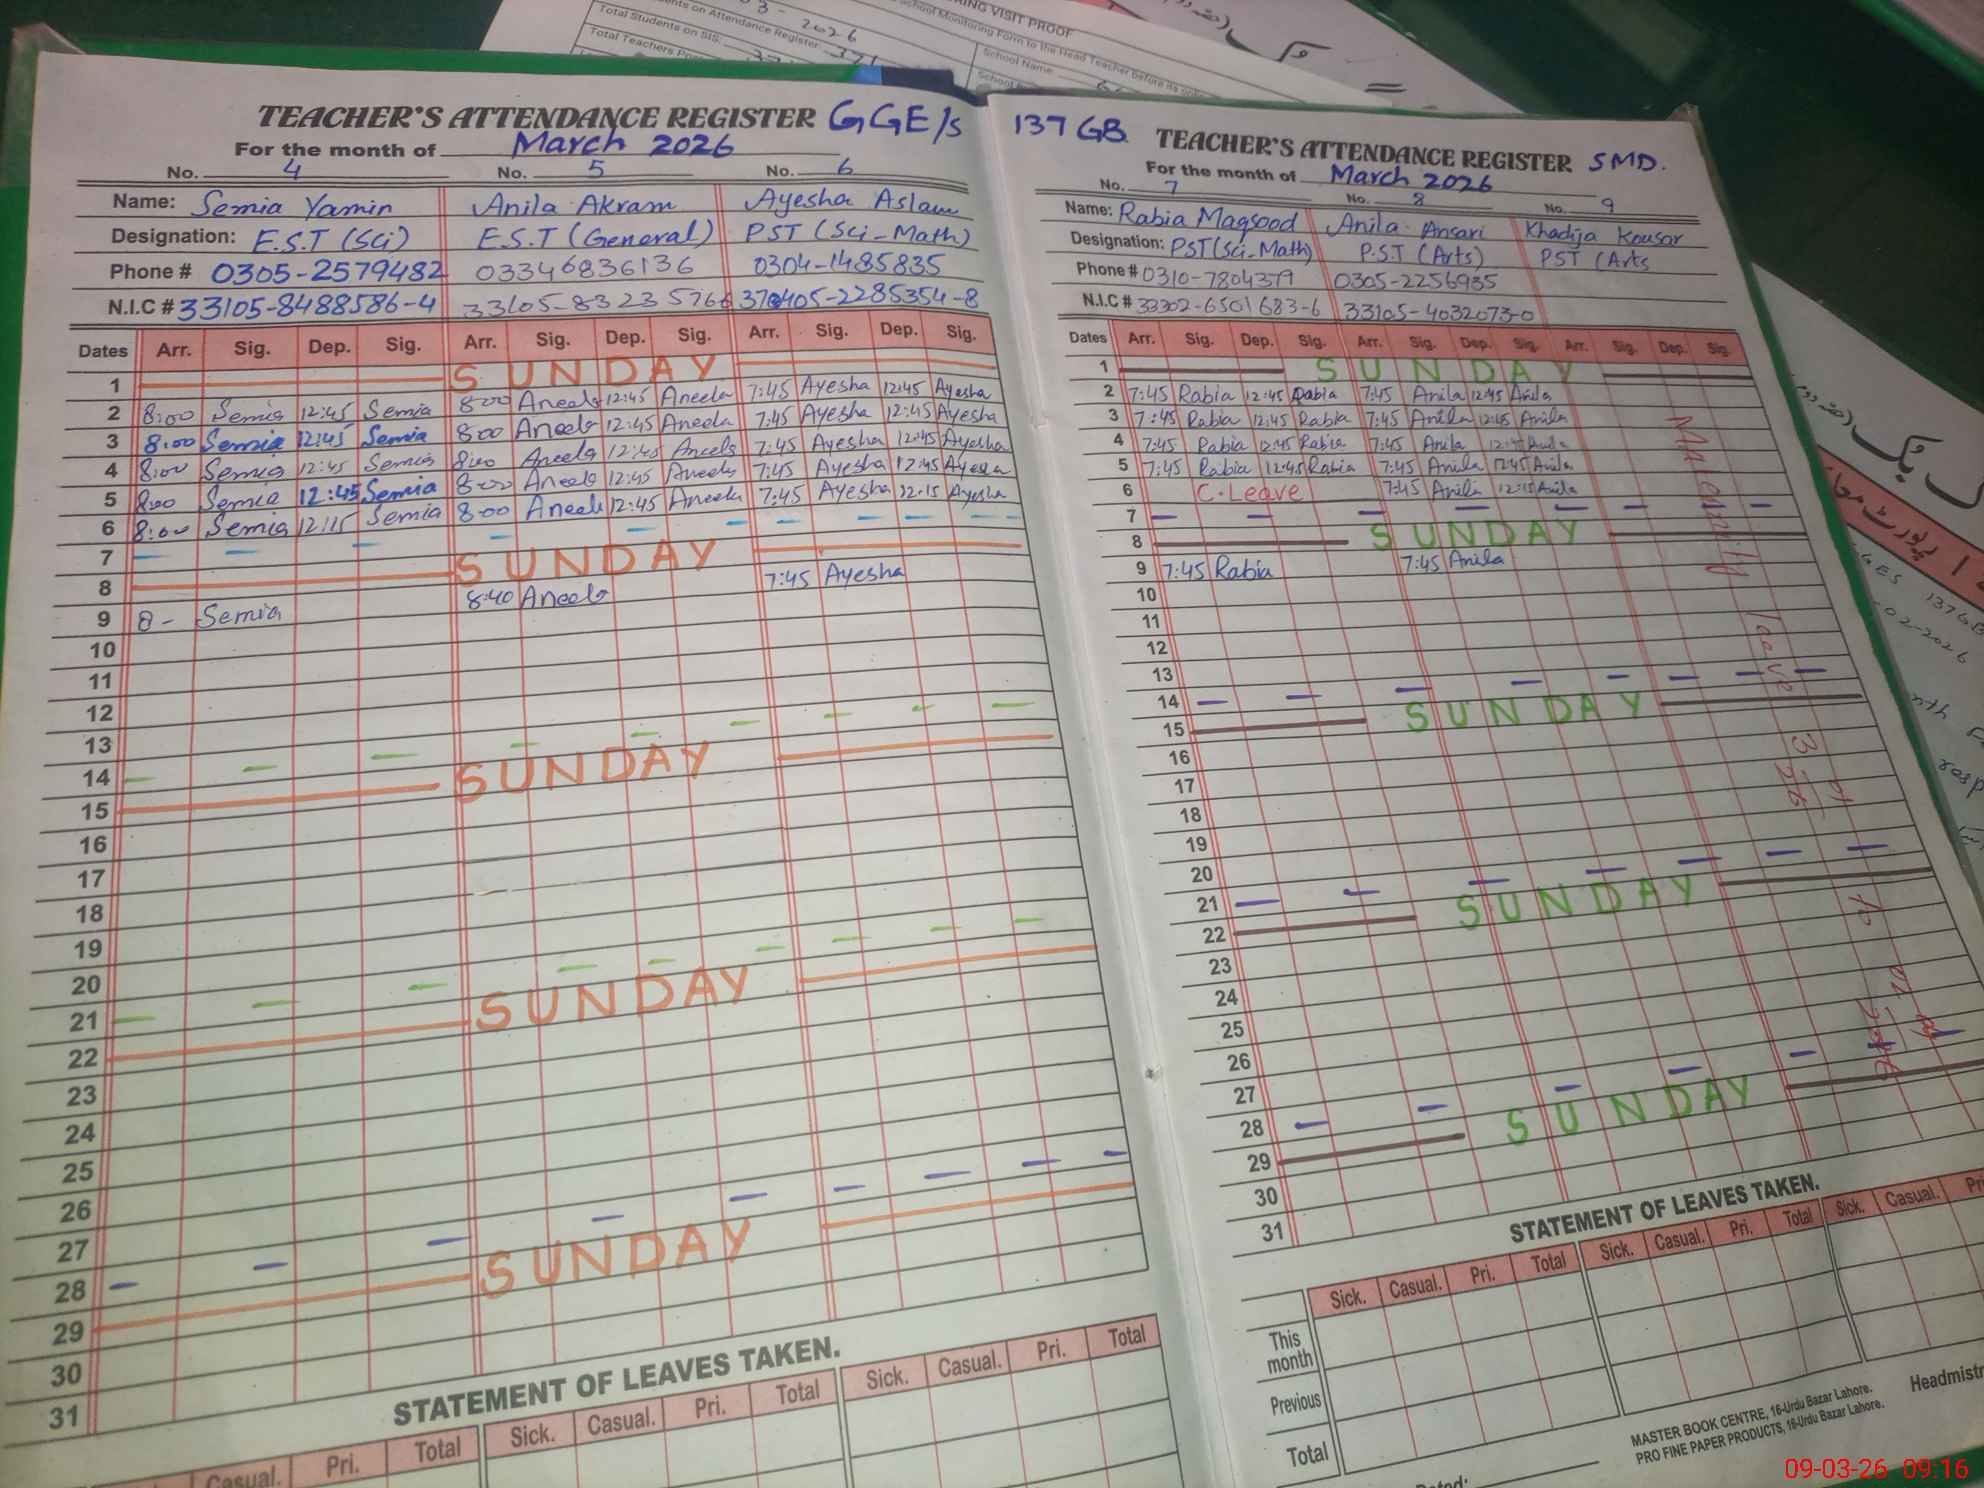 3 - 2026
Total Students on SIS:
ents on Attendance Register: 371
Total Teachers Pre
RING VISIT PROOF
School Monitoring Form to the Head Teacher before its
School Name:
School
TEACHER'S ATTENDANCE REGISTER GGE/s
For the month of March 2026
No. 4 No. 5 No. 6
Name: Semia Yamin Anila Akram Ayesha Aslam
Designation: E.S.T (Sci) E.S.T (General) PST (Sci-Math)
Phone # 0305-2579482 03346836136 0304-1485835
N.I.C # 33105-8488586-4 33105-83235766
Dates Arr. Sig. Dep. Sig. Arr. Sig. Dep. Sig. Arr. Sig. Dep. Sig.
1 SUNDAY
2 8:00 Semia 12:45 Semia 8:00 Aneela 12:45 Aneela 7:45 Ayesha 12:45 Ayesha
3 8:00 Semia 12:45 Semia 8:00 Aneela 12:45 Aneela 7:45 Ayesha 12:45 Ayesha
4 8:00 Semia 12:45 Semia 8:00 Aneela 12:45 Aneela 7:45 Ayesha 12:45 Ayesha
5 8:00 Semia 12:45 Semia 8:00 Aneela 12:45 Aneela 7:45 Ayesha 12:45 Ayesha
6 8:00 Semia 12:15 Semia 8:00 Aneela 12:45 Aneela 7:45 Ayesha 12:15 Ayesha
7
8 SUNDAY
9 8 - Semia 8:40 Aneela 7:45 Ayesha
10
11
12
13
14
15 SUNDAY
16
17
18
19
20
21
22 SUNDAY
23
24
25
26
27
28
29 SUNDAY
30
31
STATEMENT OF LEAVES TAKEN.
Casual. Pri. Total Sick. Casual. Pri. Total Sick. Casual. Pri. Total
137 GB. TEACHER'S ATTENDANCE REGISTER SMD.
For the month of March 2026
No. 7 No. 8 No. 9
Name: Rabia Maqsood Anila Ansari Khadija Kousar
Designation: PST (Sci-Math) P.S.T (Arts) PST (Arts
Phone # 0310-7804379 0305-2256935
N.I.C # 33302-6501683-6 33105-4032073-0
Dates Arr. Sig. Dep. Sig. Arr. Sig. Dep. Sig. Arr. Sig. Dep. Sig.
1 SUNDAY
2 7:45 Rabia 12:45 Rabia 7:45 Anila 12:45 Anila
3 7:45 Rabia 12:45 Rabia 7:45 Anila 12:45 Anila
4 7:45 Rabia 12:45 Rabia 7:45 Anila 12:45 Anila
5 7:45 Rabia 12:45 Rabia 7:45 Anila 12:45 Anila
6 C.Leave 7:45 Anila 12:15 Anila
7
8 SUNDAY
9 7:45 Rabia 7:45 Anila
10
11
12
13
14
15 SUNDAY
16
17
18
19
20
21
22 SUNDAY
23
24
25
26
27
28
29 SUNDAY
30
31
Maternity leave
to
STATEMENT OF LEAVES TAKEN.
Sick. Casual. Pri. Total Sick. Casual. Pri. Total Sick. Casual. Pri
This month
Previous
Total
MASTER BOOK CENTRE, 16-Urdu Bazar Lahore.
PRO FINE PAPER PRODUCTS, 16-Urdu Bazar Lahore.
Headmistr
Dated:
137GB
02-2026
09-03-26 09:16